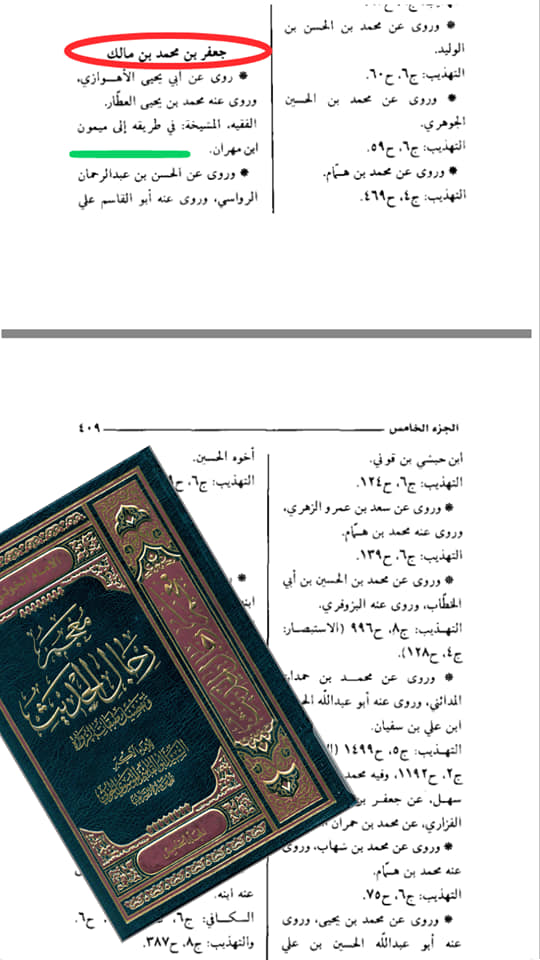 وروى عن محمد بن الحسن بن
الوليد.
التهذيب: ج٦، ح٦٠.
* وروى عن محمد بن الحسين
الجوهري.
التهذيب: ج٦، ح٥٩.
* وروى عن محمد بن همّام.
التهذيب: ج٤، ح٤٦٩.
جعفر بن محمد بن مالك
* روى عن أبي يحيى الأهوازي،
وروى عنه محمد بن يحيى العطّار.
الفقيه، المشيخة: في طريقه إلى ميمون
ابن مهران.
* وروى عن الحسن بن عبدالرحمان
الرواسي، وروى عنه أبو القاسم علي
الجزء الخامس ٤٠٩
ابن حبشي بن قوني.
التهذيب: ج٦، ح١٢٤.
* وروى عن سعد بن عمرو الزهري،
وروى عنه محمد بن همّام.
التهذيب: ج٦، ح١٣٩.
* وروى عن محمد بن الحسين بن أبي
الخطّاب، وروى عنه البزوفري.
التهذيب: ج٨، ح٩٩٦ (الاستبصار:
ج٤، ح١٢٨).
* وروى عن محمد بن حمدان
المدائني، وروى عنه أبو عبدالله
ابن علي بن سفيان.
التهذيب: ج٥، ح١٤٩٩
ج٢، ح١١٩٢، وفيه محمد
سهل، عن جعفر بن
الفزاري، عن محمد بن حمران
* وروى عن محمد بن شهاب، وروى
عنه محمد بن همّام.
التهذيب: ج٦، ح٧٥.
* وروى عن محمد بن يحيى، وروى
عنه أبو عبدالله الحسين بن علي
أخوه الحسين.
التهذيب: ج٦،
عنه أبنه.
الكافي: ج٦، ح٦.
والتهذيب: ج٨، ح٣٨٧.
معجم
رجال الحديث
وتفصيل طبقات الرواة